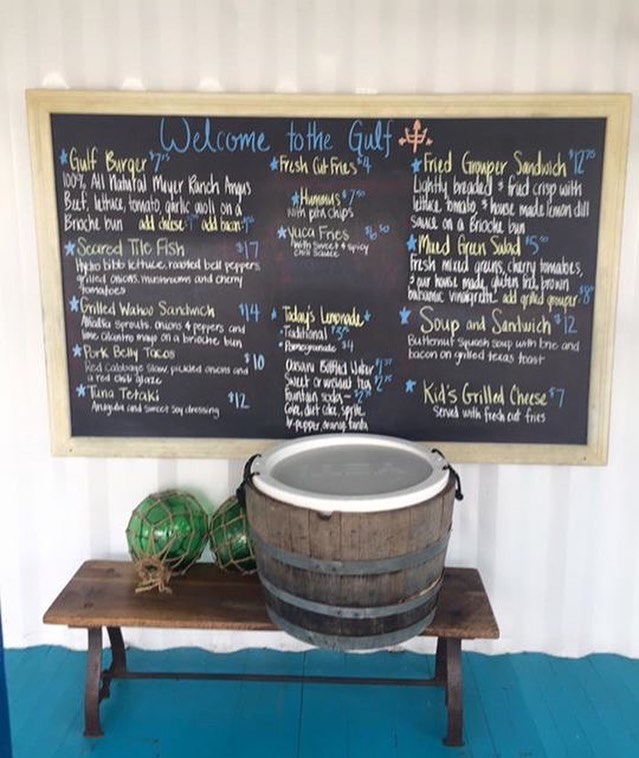 Welcome to the Gulf
Gulf Burger $7
100% All Natural Meyer Ranch Angus
Beef, lettuce, tomato garlic aioli on a
Brioche bun add cheese add bacon
Seared Tile Fish $17
Hydro bibb lettuce, roasted bell peppers
grilled onions, mushrooms and cherry
tomatoes
Grilled Wahoo Sandwich $14
Alfalfa sprouts, onions & peppers and
lime cilantro mayo on a brioche bun
Pork Belly Tacos $10
Red Cabbage Slaw, pickled onions and
a red chili glaze
Tuna Tetaki $12
Arugula and sweet soy dressing
Fresh Cut Fries $4
Hummus $7.50
with pita chips
Yuca Fries $6.50
with sweet & spicy
chili sauce
Today's Lemonade
Traditional
Pomegranate $4
Dasani Bottled Water
Sweet or unsweet tea
fountain soda -
Coke, diet coke, sprite
dr pepper, orange fanta
Fried Grouper Sandwich $12.75
Lightly breaded & fried crisp with
lettuce, tomato & house made lemon dill
sauce on a Brioche bun
Mixed Green Salad $5
Fresh mixed greens, cherry tomatoes,
& our house made, gluten free, brown
balsamic vinaigrette add grilled grouper
Soup and Sandwich $12
Butternut squash soup with brie and
bacon on grilled texas toast
Kid's Grilled Cheese $7
Served with fresh cut fries